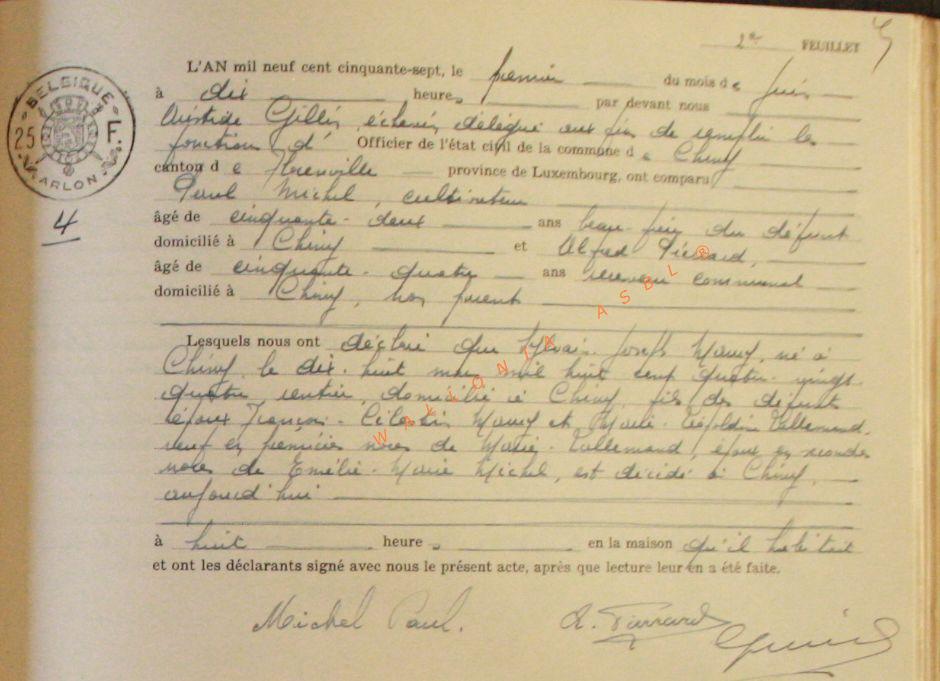 2me FEUILLET 5
L'AN mil neuf cent cinquante-sept, le premier du mois de juin
à dix heures par devant nous
Aristide Gillin, échevin délégué aux fins de remplir les
fonctions d' Officier de l'état civil de la commune de Chiny
canton de Florenville province de Luxembourg, ont comparu
Paul Michel, cultivateur
âgé de cinquante-deux ans beau-frère du défunt
domicilié à Chiny et Alfred Piérard,
âgé de cinquante-quatre ans receveur communal
domicilié à Chiny, non parent
Lesquels nous ont déclaré que Sylvain-Joseph Maury, né à
Chiny, le dix-huit mai mil huit cent quatre-vingt-
quatre, rentier, domicilié à Chiny, fils des défunts
époux François-Célestin Maury et Marie-Léopoldine Lallemand,
veuf en premières noces de Marie Lallemand, époux en secondes
noces de Emélie-Marie Michel, est décédé à Chiny,
aujourd'hui
à huit heures en la maison qu'il habitait
et ont les déclarants signé avec nous le présent acte, après que lecture leur en a été faite.
Michel Paul.
BELGIQUE
25 F.
ARLON
4
WALLONIA ASBL ®